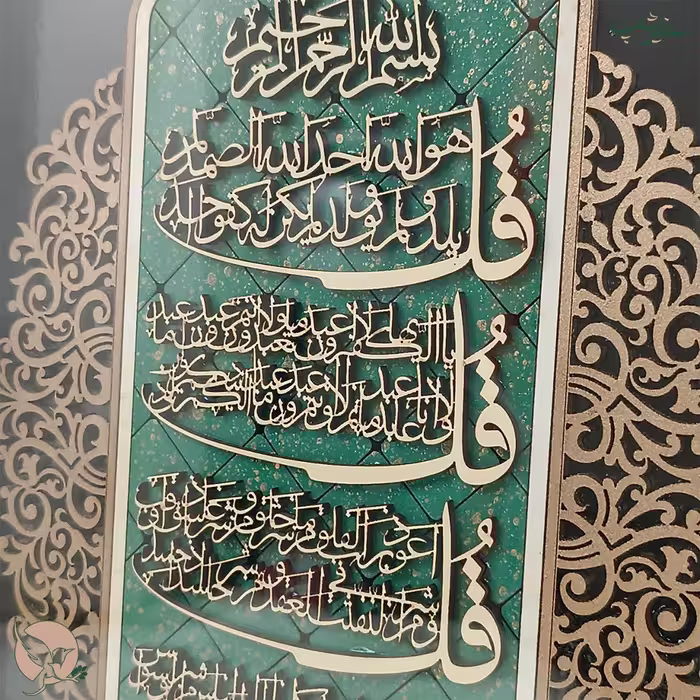 بسم الله الرحمن الرحیم
قُل هو الله احد الله الصمد لم
یلد و لم یولد و لم یکن له کفوا احد
قُل یا ایها الکفرون لا اعبد ما تعبدون و لا انتم عبدون ما اعبد
و لا انا عابد ما عبدتم و لا انتم عبدون ما اعبد لکم دینکم
قُل اعوذ برب الفلق من شر ما خلق و من شر غاسق اذا وقب
و من شر النفثت فی العقد و من شر حاسد اذا حسد